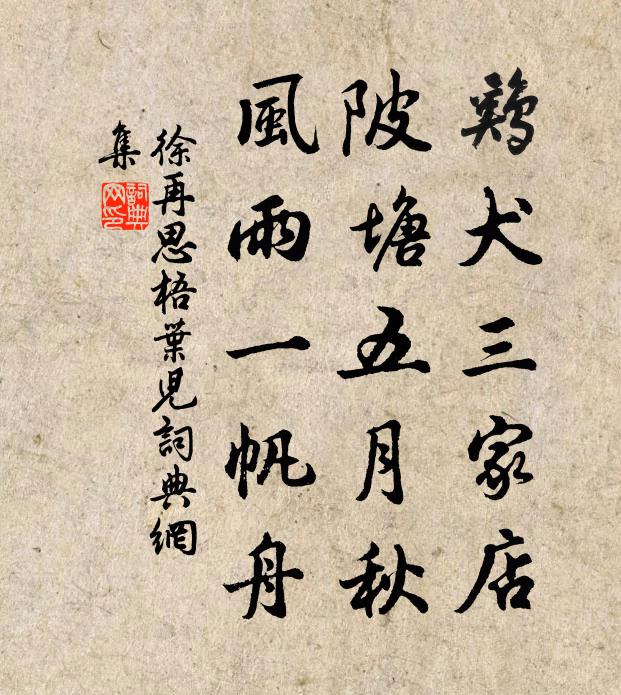 鷄犬三家店
陂塘五月秋
風雨一帆舟
徐再思梧葉児詞典網
集
詞典
网印